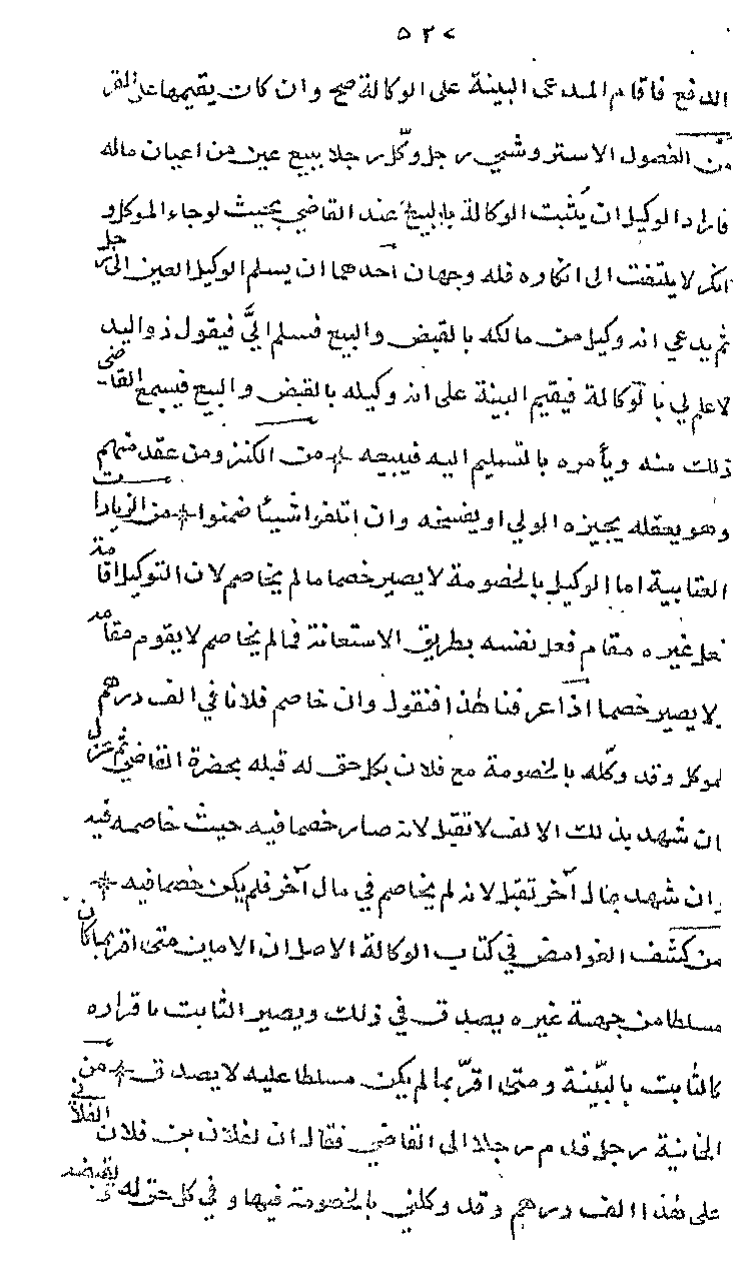 ٥٢٧
الدفع فاقام المدعى البينة على الوكالة صح وان كان يقيمها على المقر
من الفصول الاستروشني رجل وكّل رجلا ببيع عين من اعيان ماله
فاراد الوكيل ان يُثبت الوكالة بالبيع عند القاضي بحيث لو جاء الموكل و
انكر لا يلتفت الى انكاره فله وجهان احدهما ان يسلم الوكيل العين الى رجل
ثم يدعي انه وكيل من مالكه بالقبض والبيع فسلم اليَّ فيقول ذو اليد
لا علم لي بالوكالة فيقيم البينة على انه وكيله بالقبض والبيع فيسمع القاضى
ذلك منه ويأمره بالتسليم اليه فيبيعه من الكنز ومن عقد منهم
وهو يعقله يجيزه الولي او يفسخه وان اتلفوا شيئا ضمنوا من الزيادات
العتابية اما الوكيل بالخصومة لا يصير خصما ما لم يخاصم لان التوكيل اقامة
فعل غيره مقام فعل نفسه بطريق الاستعانة فما لم يخاصم لا يقوم مقامه
لا يصير خصما اذا عرفنا هذا فنقول وان خاصم فلانا في الف درهم
لموكل وقد وكّله بالخصومة مع فلان بكل حق له قبله بحضرة القاضي ثم عزل
ان شهد بذلك الالف لا تقبل لانه صار خصما فيه حيث خاصمه فيه
وان شهد بمال آخر تقبل لانه لم يخاصم في مال آخر فلم يكن خصما فيه
من كشف الغوامض في كتاب الوكالة الاصل ان الامين متى اقر بما كان
مسلطا من جهة غيره يصدق في ذلك ويصير الثابت باقراره
كالثابت بالبيّنة ومتى اقرّ بما لم يكن مسلطا عليه لا يصدق من
الخانية رجل قدم رجلا الى القاضي فقال ان لفلان بن فلان الفلاني
على هذا الف درهم وقد وكلني بالخصومة فيها و في كل حق له